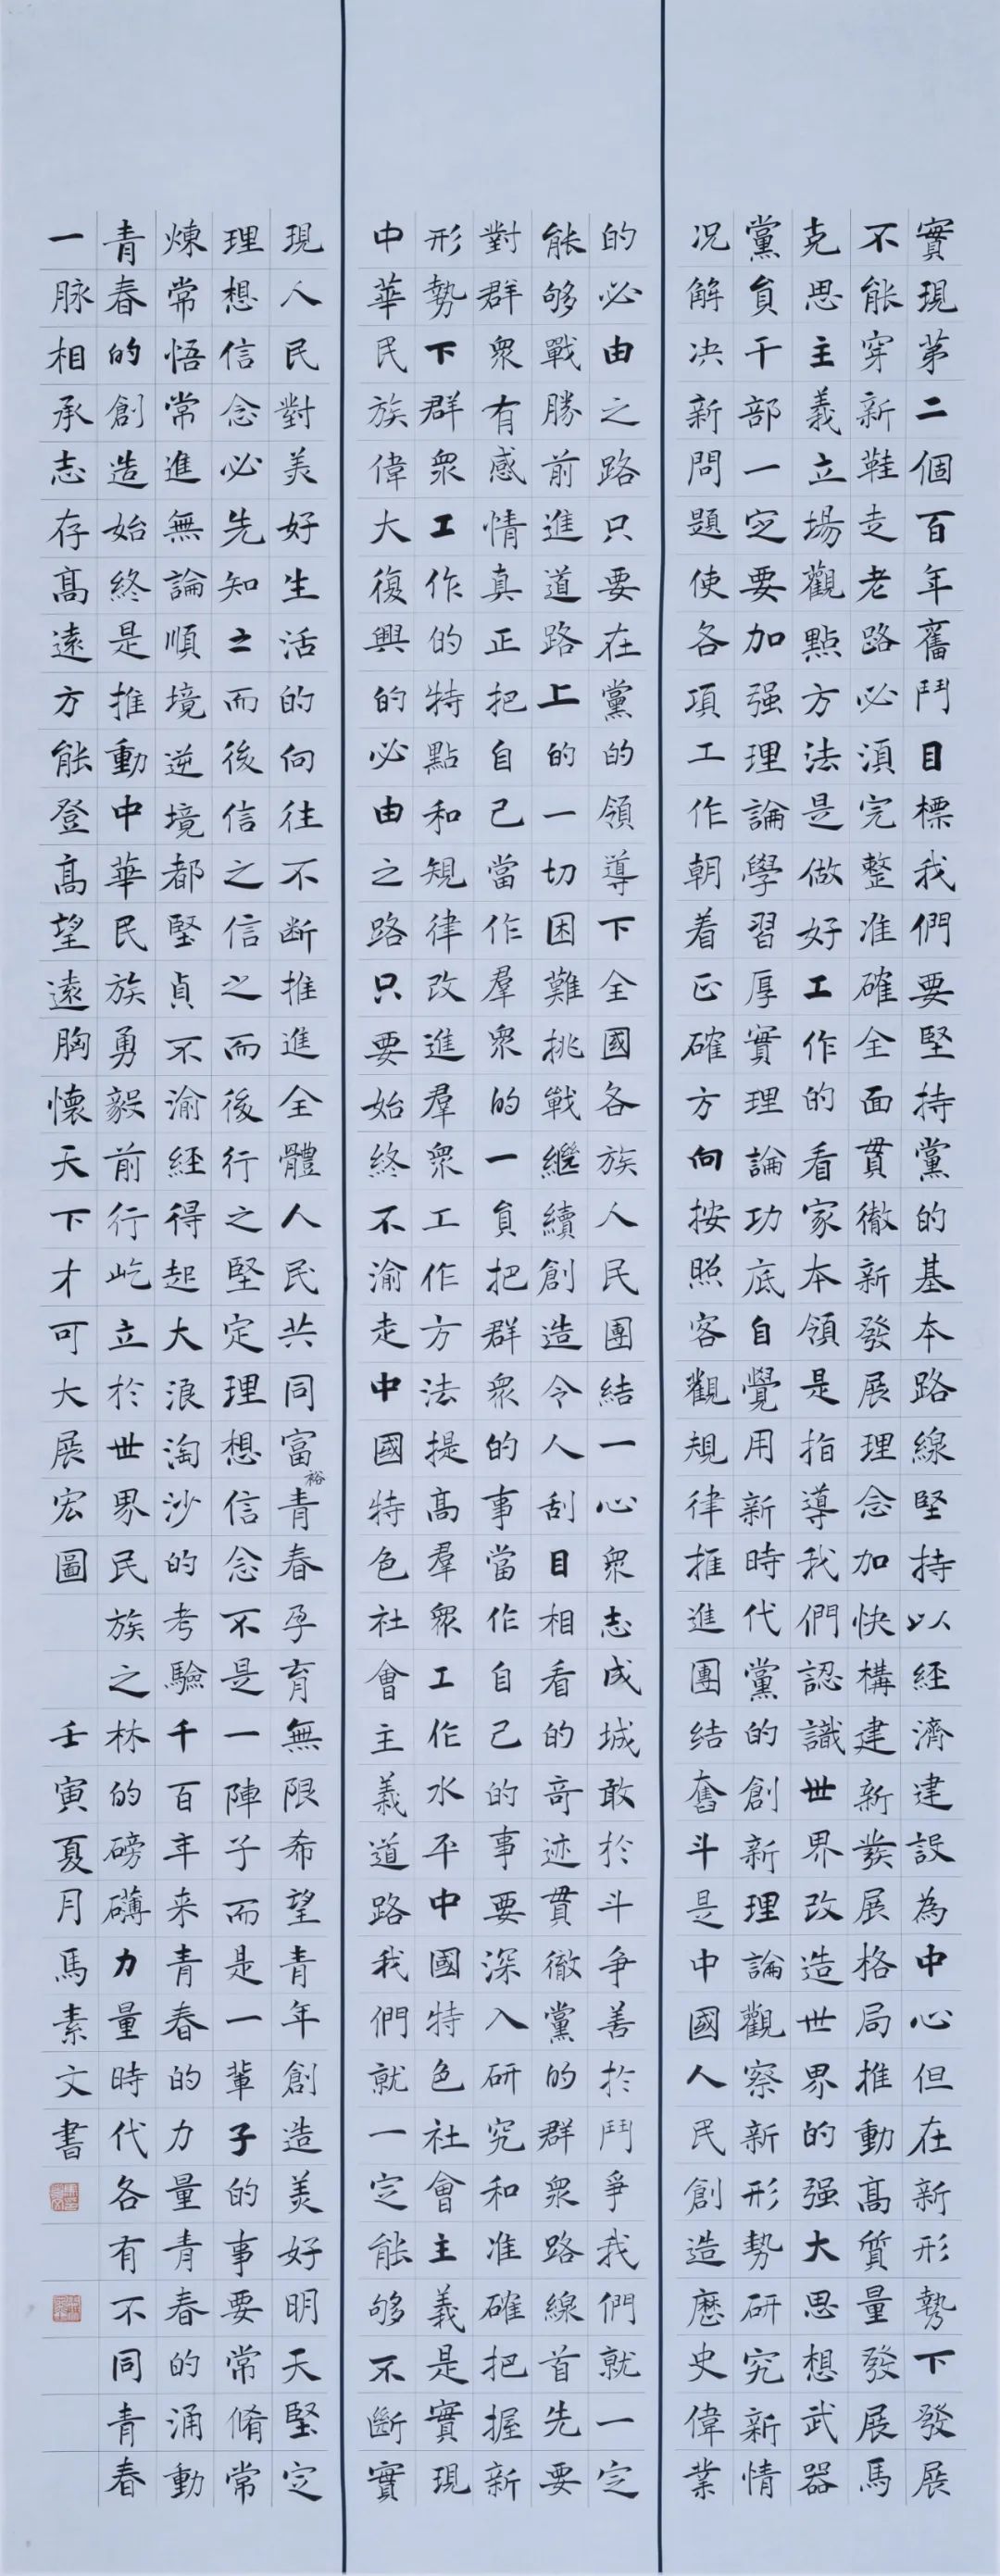 實現第二個百年奮鬥目標我們要堅持黨的基本路線堅持以經濟建設為中心但在新形勢下發展
不能穿新鞋走老路必須完整准確全面貫徹新發展理念加快構建新發展格局推動高質量發展馬
克思主義立場觀點方法是做好工作的看家本領是指導我們認識世界改造世界的强大思想武器
黨員干部一定要加强理論學習厚實理論功底自覺用新時代黨的創新理論觀察新形勢研究新情
况解决新問題使各項工作朝着正確方向按照客觀規律推進團结奮斗是中國人民創造歷史偉業
的必由之路只要在黨的領導下全國各族人民團結一心衆志成城敢於斗争善於鬥爭我們就一定
能够戰勝前進道路上的一切困難挑戰繼續創造令人刮目相看的奇迹貫徹黨的群衆路線首先要
對群衆有感情真正把自己當作羣衆的一員把群衆的事當作自己的事要深入研究和准確把握新
形勢下群衆工作的特點和規律改進羣衆工作方法提高羣衆工作水平中國特色社會主義是實現
中華民族偉大復興的必由之路只要始終不渝走中國特色社會主義道路我們就一定能够不斷實
現人民對美好生活的向往不断推進全體人民共同富裕青春孕育無限希望青年創造美好明天堅定
理想信念必先知之而後信之信之而後行之堅定理想信念不是一陣子而是一輩子的事要常脩常
煉常悟常進無論順境逆境都堅貞不渝經得起大浪淘沙的考驗千百年来青春的力量青春的涌動
青春的創造始終是推動中華民族勇毅前行屹立於世界民族之林的磅礴力量時代各有不同青春
一脉相承志存高遠方能登高望遠胸懷天下才可大展宏圖
壬寅夏月馬素文書